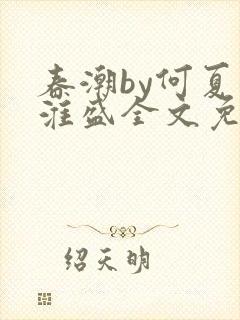 春潮by何夏
淮盛全文免
绍天明